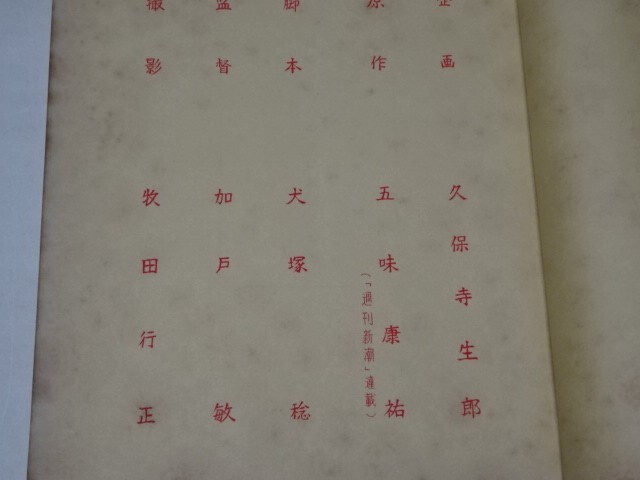 企画 久保寺生郎
原作 五味康祐
(「週刊新潮」連載)
脚本 犬塚稔
監督 加戸敏
撮影 牧田行正